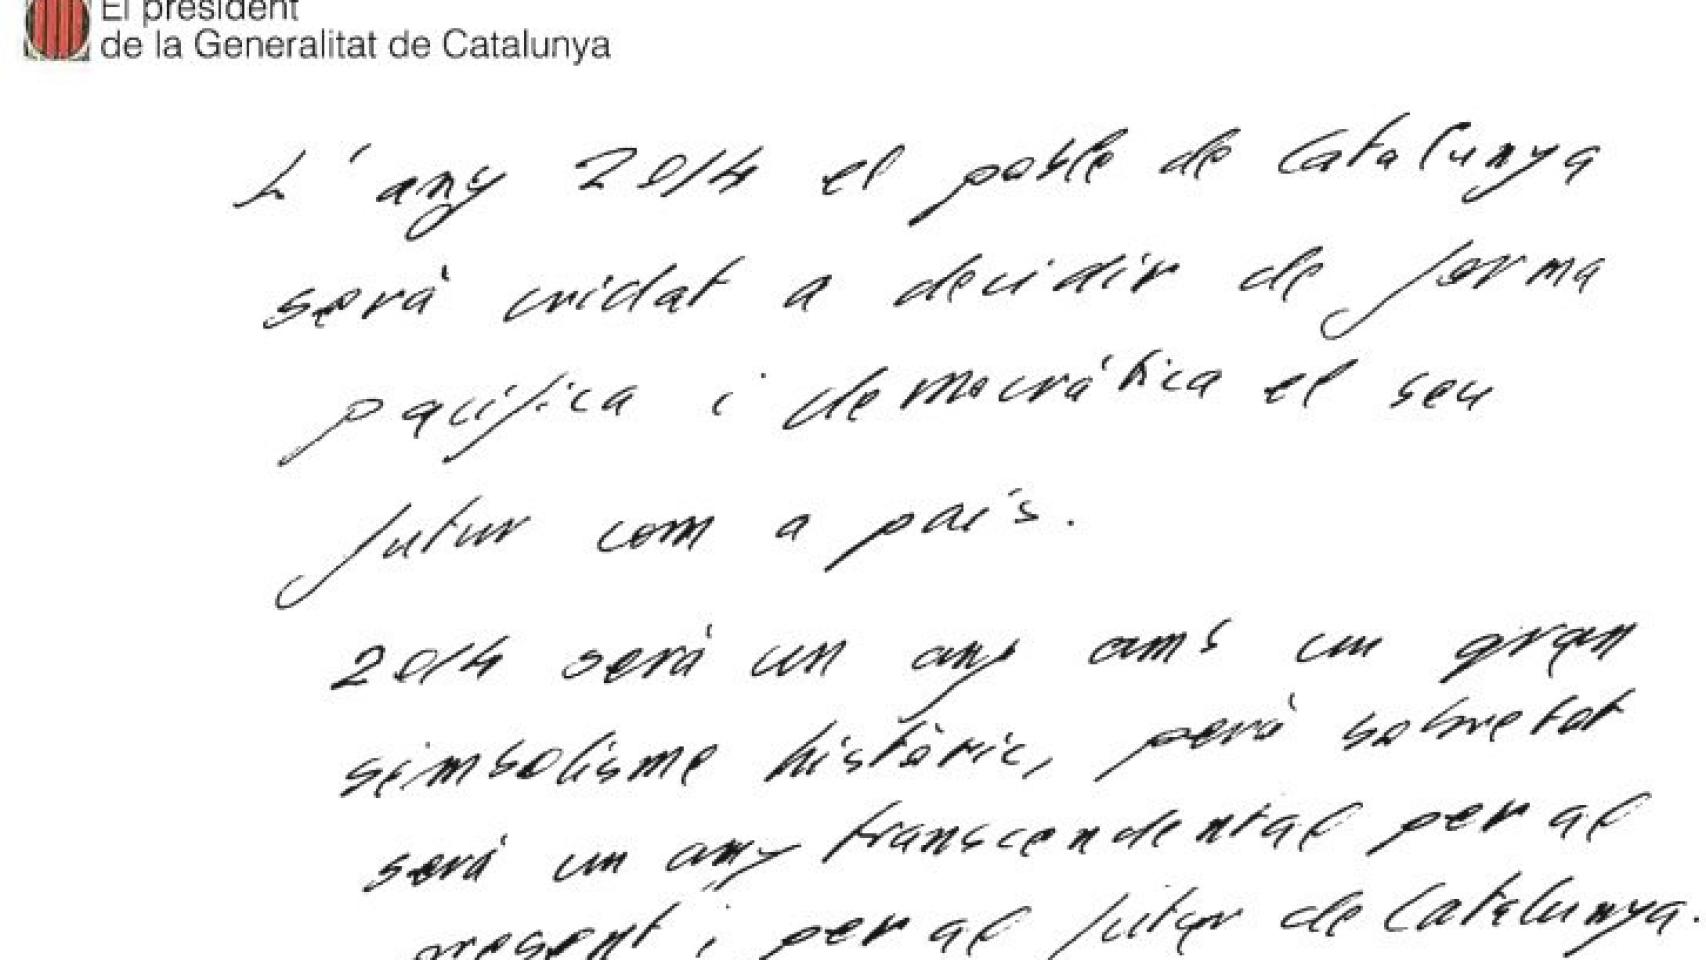 El president
de la Generalitat de Catalunya
L'any 2014 el poble de Catalunya
serà cridat a decidir de forma
pacífica i democràtica el seu
futur com a país.
2014 serà un any amb un gran
simbolisme històric, però sobretot
serà un any transcendental per al
present i per al futur de Catalunya.